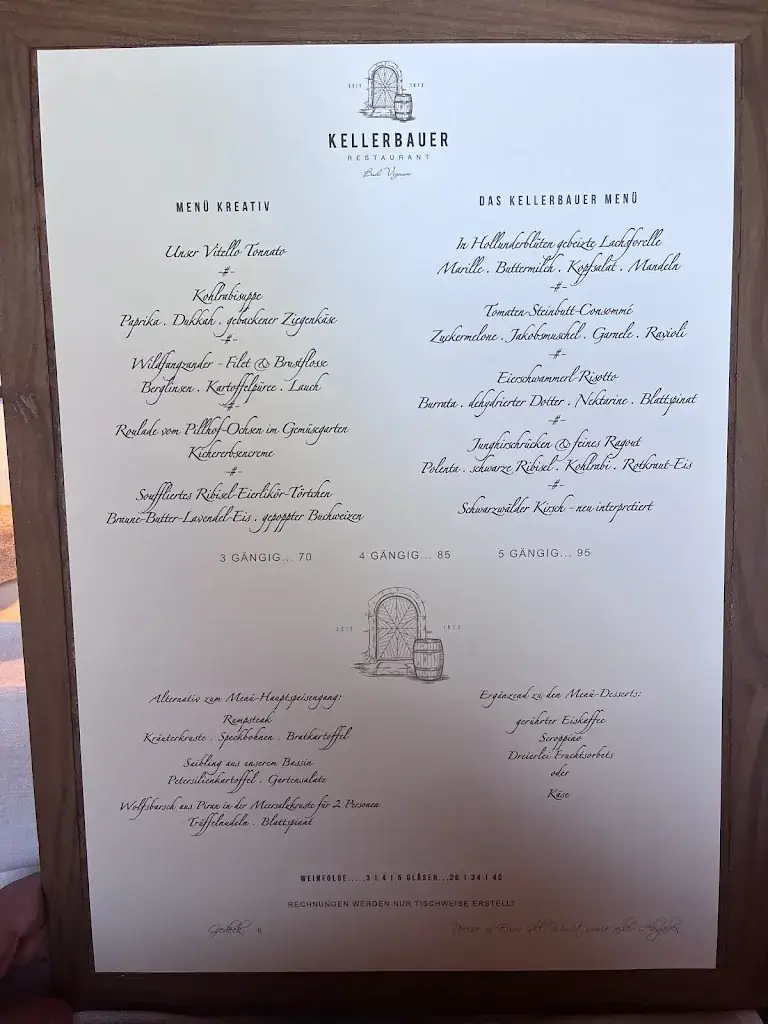 SEIT 1872
KELLERBAUER
RESTAURANT
Bad Vigaun
MENÜ KREATIV
Unser Vitello Tonnato
-#-
Kohlrabisuppe
Paprika . Dukkah . gebackener Ziegenkäse
-#-
Wildfangzander - Filet & Brustflosse
Berglinsen . Kartoffelpüree . Lauch
-#-
Roulade vom Pillhof-Ochsen im Gemüsegarten
Kichererbsencreme
-#-
Souffliertes Ribisel-Eierlikör-Törtchen
Braune-Butter-Lavendel-Eis . gepoppter Buchweizen
DAS KELLERBAUER MENÜ
In Hollunderblüten gebeizte Lachsforelle
Marille . Buttermilch . Kopfsalat . Mandeln
-#-
Tomaten-Steinbutt-Consommé
Zuckermelone . Jakobsmuschel . Garnele . Ravioli
-#-
Eierschwammerl-Risotto
Burrata . dehydrierter Dotter . Nektarine . Blattspinat
-#-
Junghirschrücken & feines Ragout
Polenta . schwarze Ribisel . Kohlrabi . Rotkraut-Eis
-#-
Schwarzwälder Kirsch - neu interpretiert
3 GÄNGIG... 70 4 GÄNGIG... 85 5 GÄNGIG... 95
SEIT 1872
Alternativ zum Menü-Hauptspeisengang:
Rumpsteak
Kräuterkruste . Speckbohnen . Bratkartoffel
Saibling aus unserem Bassin
Petersilienkartoffel . Gartensalate
Wolfsbarsch aus Piran in der Meersalzkruste für 2 Personen
Trüffelnudeln . Blattspinat
Ergänzend zu den Menü-Desserts:
gerührter Eiskaffee
Scroppino
Dreierlei Fruchtsorbets
oder
Käse
WEINFOLGE.....3 I 4 I 5 GLÄSER...26 I 34 I 40
RECHNUNGEN WERDEN NUR TISCHWEISE ERSTELLT
Gedeck 6
Preise in Euro inkl. MwSt sowie aller Abgaben